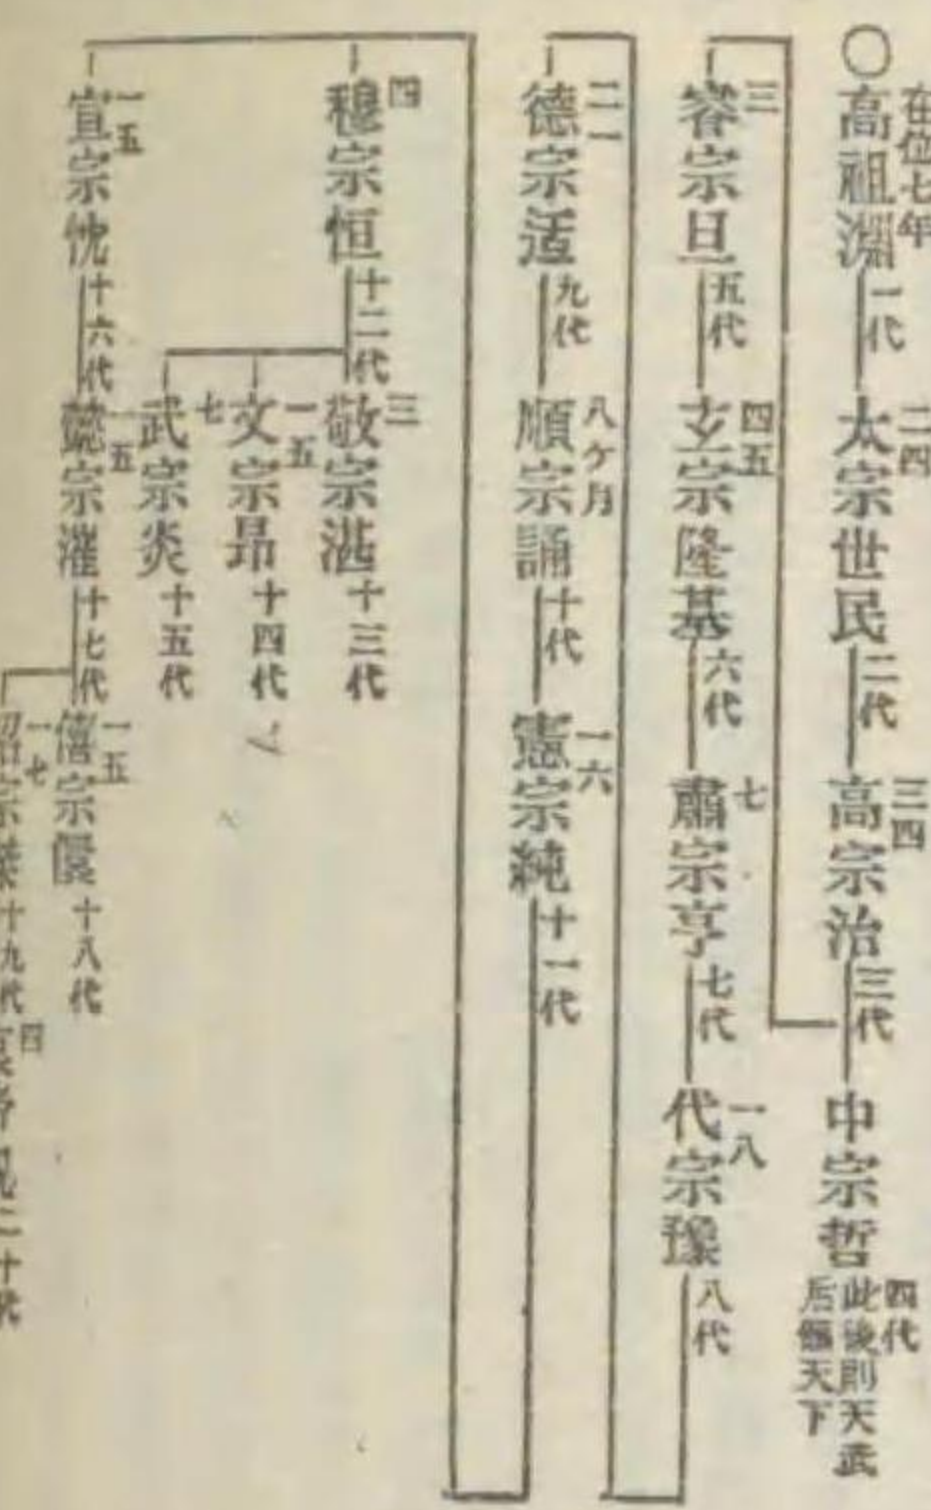 ○高祖淵 在位七年 一代
太宗世民 二四 二代
高宗治 三四 三代
中宗哲 四代 此後則天武后僞天下
睿宗旦 三 五代
玄宗隆基 四五 六代
肅宗亨 七 七代
代宗豫 一八 八代
德宗适 二一 九代
順宗誦 八ケ月 十代
憲宗純 一六 十一代
穆宗恒 四 十二代
敬宗湛 三 十三代
文宗昻 一五 十四代
武宗炎 七 十五代
宣宗忱 一五 十六代
懿宗漼 一五 十七代
僖宗儇 一五 十八代
昭宗 一七 十九代
四 二十代